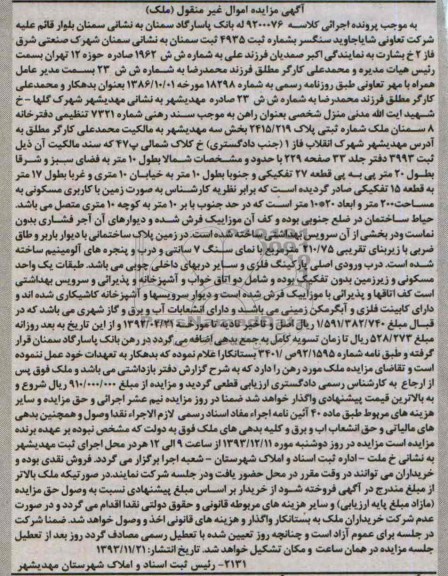 آگهی مزایده اموال غیر منقول (ملک)
به موجب پرونده اجرائی کلاسه ۹۲۰۰۰۷۶ له بانک پاسارگاد سمنان به نشانی سمنان بلوار قائم علیه
شرکت تعاونی شایاجاوید سنگسر بشماره ثبت ۴۹۳۵ ثبت سمنان به نشانی سمنان شهرک صنعتی شرق
فاز ۲ خ بشارت به نمایندگی اکبر صمدیان فرزند علی به شماره ش ش ۱۹۶۲ صادره حوزه ۱۲ تهران بسمت
رئیس هیات مدیره و محمدعلی کارگر مطلق فرزند محمدرضا به شماره ش ش ۲۳ بسمت مدیر عامل
همراه با مهر تعاونی طبق روزنامه رسمی به شماره ۱۸۲۹۸ مورخه ۱۳۸۶/۱۰/۰۱ بعنوان بدهکار و محمدعلی
کارگر مطلق فرزند محمدرضا به شماره ش ش ۲۳ صادره مهدیشهر به نشانی مهدیشهر شهرک گلها - خ
شهید ایت الله مدنی منزل شخصی بعنوان راهن به موجب سند رهنی شماره ۷۳۲۱ تنظیمی دفترخانه
۸ سمنان ملک شماره ثبتی پلاک ۲۴۱۵/۲۱۹ بخش سه مهدیشهر به مالکیت محمدعلی کارگر مطلق به
آدرس مهدیشهر شهرک انقلاب فاز ۱ (جنب دادگستری) خ کلاک شمالی پ۴۷ که سند مالکیت آن ذیل
ثبت ۳۹۹۳ دفتر جلد ۳۳ صفحه ۲۲۹ با حدود و مشخصات شمالا بطول ۱۰ متر به فضای سبز و شرقا
بطول ۲۰ متر پی به پی قطعه ۲۷ تفکیکی و جنوبا بطول ۱۰ متر به خیابان ۱۰ متری و غربا بطول ۱۷ متر
به قطعه ۱۵ تفکیکی صادر گردیده است که برابر نظریه کارشناس به صورت زمین با کاربری مسکونی به
مساحت ۲۰۰ متر و ابعاد ۲۰*۱۰ متر است که در حد جنوب با بر ۱۰ متر به کوچه ۱۰ متری متصل می باشد.
حیاط ساختمان در ضلع جنوبی بوده و کف آن موزاییک فرش شده و دیوارهای آن آجر فشاری بدون
نماست ودر بخشی از آن سرویس بهداشتی ساخته شده است. در زمین پلاک ساختمانی با دیوار باربر و طاق
ضربی با زیربنای تقریبی ۲۱۰/۷۵ متر مربع با نمای سنگ ۷ سانتی و درب و پنجره های آلومینیم ساخته
شده است. درب ورودی اصلی پارکینگ فلزی و سایر دربهای داخلی چوبی می باشد. طبقات یک واحد
مسکونی و زیرزمین بدون تفکیک بوده و شامل دو اتاق خواب و آشپزخانه و پذیرائی و سرویس بهداشتی
است کف اتاقها و پذیرائی با موزاییک فرش شده است و دیوار سرویسها و آشپزخانه کاشیکاری شده اند و
دارای کابینت فلزی و آبگرمکن زمینی می باشند و دارای انشعابات آب و برق و گاز شهری می باشد که در
قبال مبلغ ۱/۵۹۱/۳۸۲/۷۴۰ ریال اصل و تاخیر تادیه تا مورخه ۱۳۹۲/۰۲/۲۱ و از این تاریخ به بعد روزانه
مبلغ ۵۲۸/۲۷۳ ریال تا زمان تسویه کامل به جمع بدهی اضافه می گردد در رهن بانک پاسارگاد سمنان قرار
گرفته و طبق نامه شماره ۹۲/۱۵۹۵ص/۳۴۰۱ بستانکار اعلام نموده که بدهکار به تعهدات خود عمل ننموده
است و تقاضای مزایده ملک مورد رهن را دارد که به شرح گزارش دفتر بازداشتی می باشد و ملک فوق پس
از ارجاع به کارشناس رسمی دادگستری ارزیابی قطعی گردید و مزایده از مبلغ ۹۱۰/۰۰۰/۰۰۰ ریال شروع و
به بالاترین قیمت پیشنهادی واگذار خواهد شد ضمنا در روز مزایده نیم عشر اجرائی و حق مزایده و سایر
هزینه های مربوط طبق ماده ۴۰ آئین نامه اجراء مفاد اسناد رسمی لازم الاجراء نقدا وصول و همچنین بدهی
های مالیاتی و حق انشعاب اب و برق و کلیه بدهی های ملک فوق به دولت که مشخص نبوده بر عهده برنده
مزایده است مزایده در روز دوشنبه موره ۱۳۹۳/۱۲/۱۱ از ساعت ۹ الی ۱۲ هر در محل اجرای ثبت مهدیشهر
به نشانی خ ملت - اداره ثبت اسناد و املاک شهرستان - شعبه اجرا برگزار می گردد. فروش نقدی بوده و
خریداران می توانند در وقت مقرر در محل حضور یافت ودر جلسه شرکت نمایند. در صورتیکه ملک بالاتر
از مبلغ مندرج در آگهی فروخته شود از خریدار بر اساس مبلغ پیشنهادی نسبت به وصول حق مزایده
(مازاد مبلغ پایه ارزیابی) و سایر هزینه های مربوطه قانونی و حقوق دولتی نقدا اقدام می گردد و در صورت
عدم شرکت خریداران ملک به بستانکار واگذار و هزینه های قانونی اخذ و وصول خواهد شد. ضمنا شرکت
در جلسه برای عموم آزاد است و چنانچه روز تعیین شده با تعطیل رسمی مصادف گردد روز بعد از تعطیل
جلسه مزایده در همان ساعت و مکان تشکیل خواهد شد. تاریخ انتشار: ۱۳۹۳/۱۱/۲۱
۲۱۳۱- رئیس ثبت اسناد و املاک شهرستان مهدیشهر